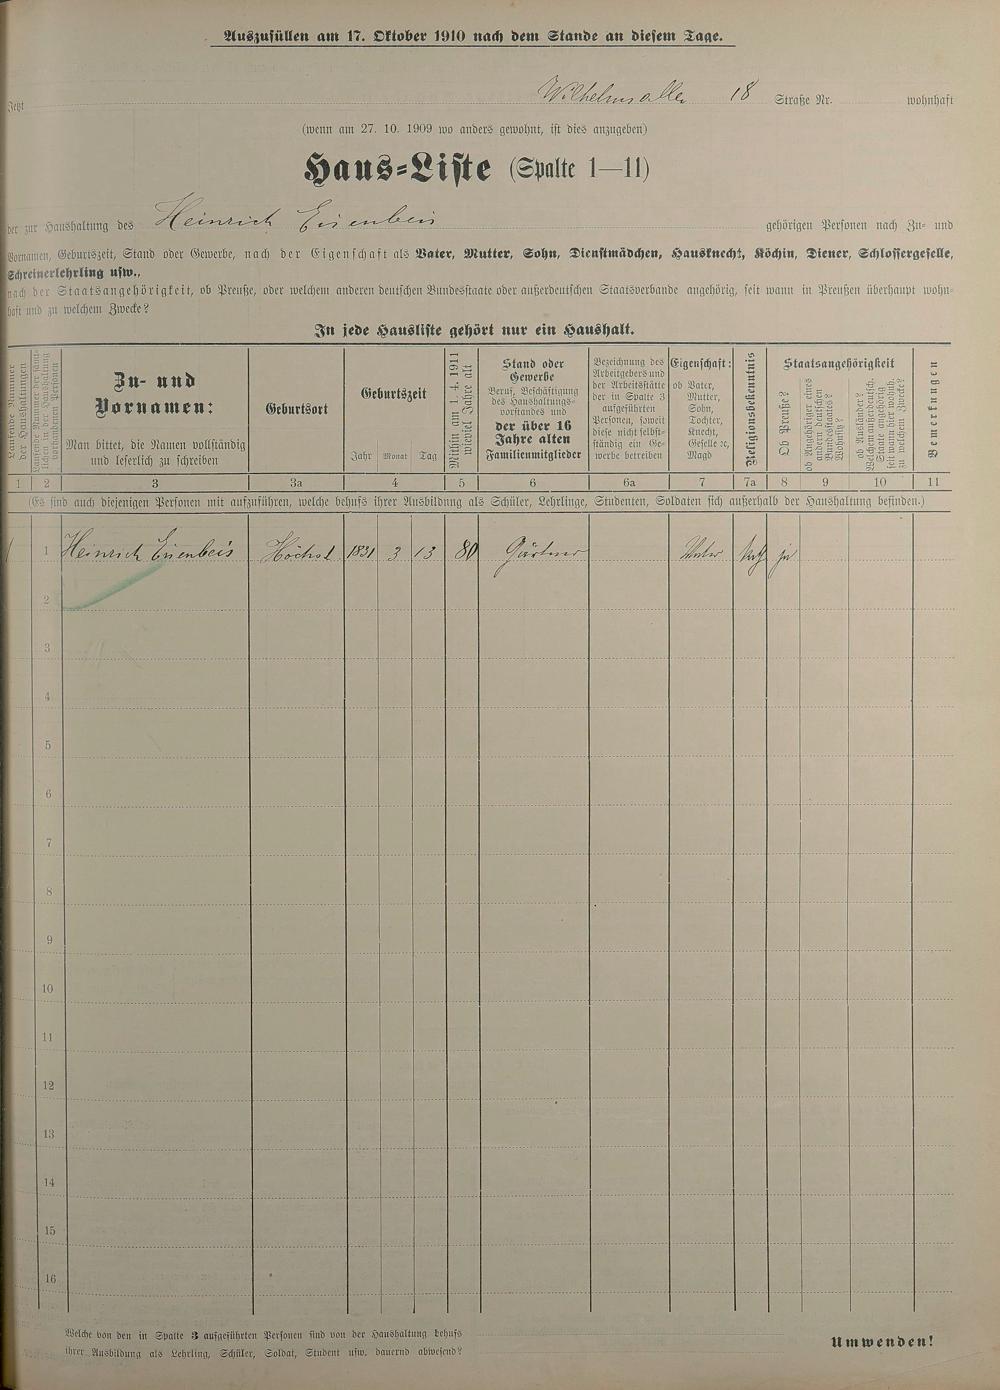 Auszufüllen am 17. Oktober 1910 nach dem Stande an diesem Tage.
Jetzt Wilhelmsallee 18 Straße Nr. wohnhaft
(wenn am 27. 10. 1909 wo anders gewohnt, ist dies anzugeben)
Haus-Liste (Spalte 1—11)
der zur Haushaltung des Heinrich Eisenbeis gehörigen Personen nach Zu- und
Vornamen, Geburtszeit, Stand oder Gewerbe, nach der Eigenschaft als Vater, Mutter, Sohn, Dienstmädchen, Hausknecht, Köchin, Diener, Schlossergeselle,
Schreinerlehrling usw.,
nach der Staatsangehörigkeit, ob Preuße, oder welchem anderen deutschen Bundesstaate oder außerdeutschen Staatsverbande angehörig, seit wann in Preußen überhaupt wohn-
haft und zu welchem Zwecke?
In jede Hausliste gehört nur ein Haushalt.
Laufende Nummer
der Haushaltungen
Laufende Nummer der sämt-
lichen in der Haushaltung
vorhandenen Personen
Zu- und
Vornamen:
Man bittet, die Namen vollständig
und leserlich zu schreiben
Geburtsort
Geburtszeit
Jahr Monat Tag
Mithin am 1. 4. 1911
wieviel Jahre alt
Stand oder
Gewerbe
Beruf, Beschäftigung
des Haushaltungs-
vorstandes und
der über 16
Jahre alten
Familienmitglieder
Bezeichnung des
Arbeitgebers und
der Arbeitsstätte
der in Spalte 3
aufgeführten
Personen, soweit
diese nicht selbst-
ständig ein Ge-
werbe betreiben
Eigenschaft:
ob Vater,
Mutter,
Sohn,
Tochter,
Knecht,
Geselle ec,
Magd
Religionsbekenntnis
Staatsangehörigkeit
Ob Preuße?
ob Angehöriger eines
andern deutschen
Bundesstaates?
Wohnsitz?
ob Ausländer?
Welchem außerdeutsch.
Staate angehörig
seit wann hier wohnh.
zu welchem Zwecke?
Bemerkungen
1 2 3 3a 4 5 6 6a 7 7a 8 9 10 11
(Es sind auch diejenigen Personen mit aufzuführen, welche behufs ihrer Ausbildung als Schüler, Lehrlinge, Studenten, Soldaten sich außerhalb der Haushaltung befinden.)
1 1 Heinrich Eisenbeis Höchst 1831 3 13 80 Gärtner Vater kath ja
2
3
4
5
6
7
8
9
10
11
12
13
14
15
16
Welche von den in Spalte 3 aufgeführten Personen sind von der Haushaltung behufs
ihrer Ausbildung als Lehrling, Schüler, Soldat, Student usw. dauernd abwesend?
Umwenden!